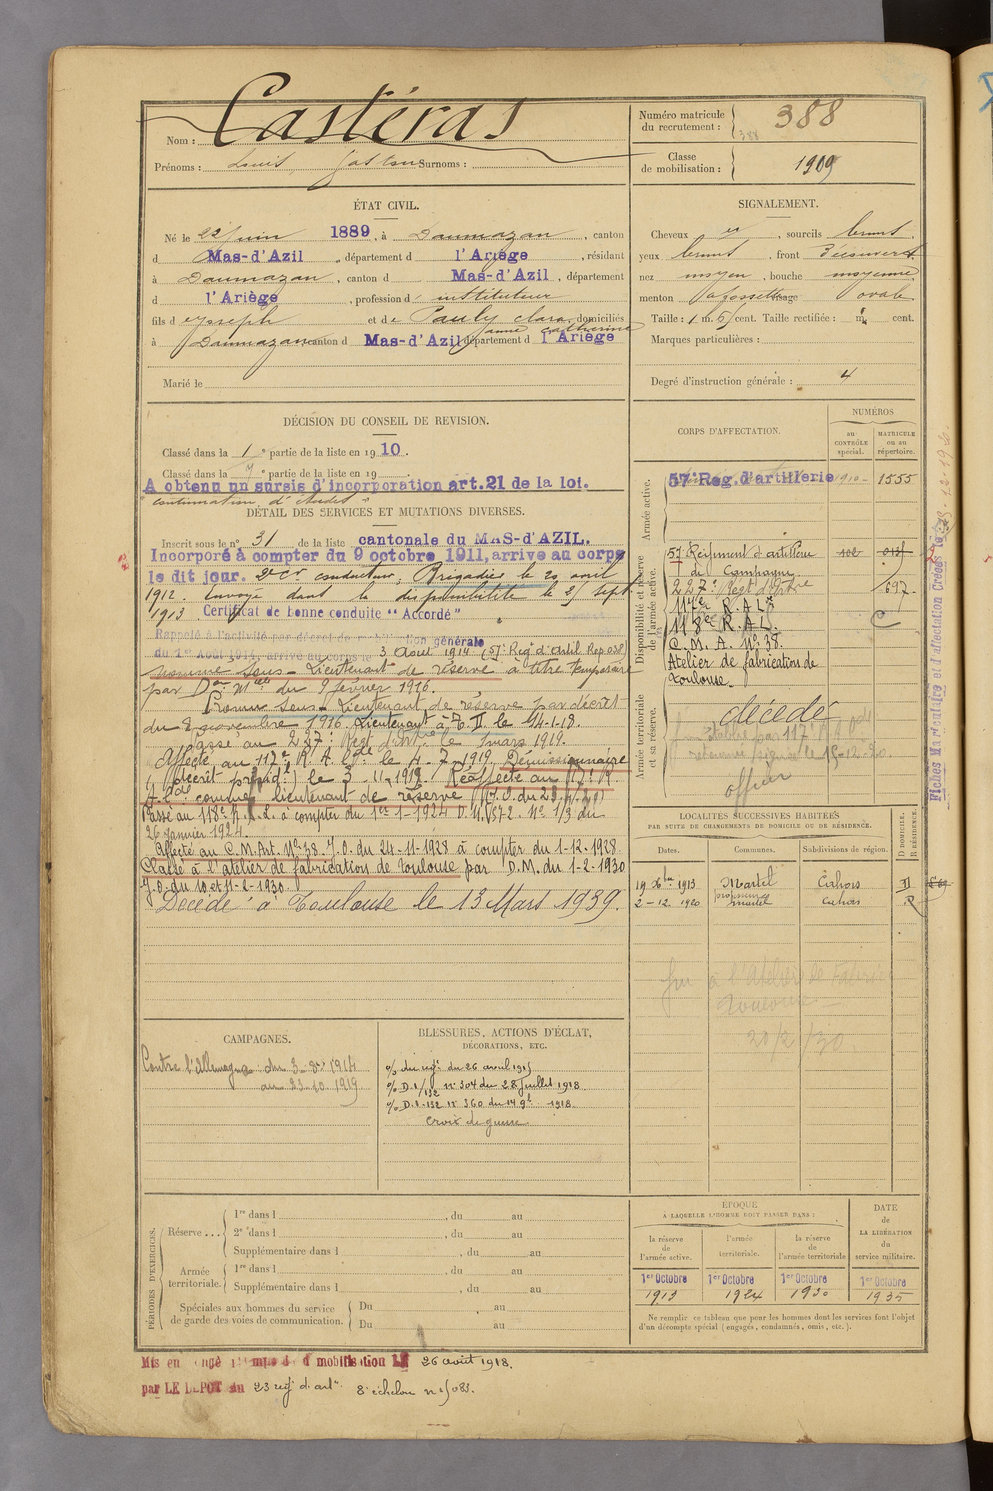 Nom : Castéras
Prénoms : Louis, Gaston Surnoms :
Numéro matricule du recrutement : 388
388
Classe de mobilisation : 1909
ÉTAT CIVIL.
Né le 22 juin 1889, à Daumazan, canton
d Mas-d'Azil, département d l'Ariège, résidant
à Daumazan, canton d Mas-d'Azil, département
d l'Ariège, profession d' instituteur
fils d e Joseph et de Pauly clara, domiciliés
anne catherine
à Daumazan canton d Mas-d'Azil département d l'Ariège
Marié le
SIGNALEMENT.
Cheveux et, sourcils bruns.
yeux bruns, front découvert,
nez moyen, bouche moyenne
menton à fossette visage ovale
Taille : 1 m. cent. Taille rectifiée : m. cent.
Marques particulières :
Degré d'instruction générale : 4
DÉCISION DU CONSEIL DE REVISION.
Classé dans la 1e partie de la liste en 1910.
Classé dans la e partie de la liste en 19
A obtenu un sursis d'incorporation art. 21 de la loi.
"continuation d'études"
DÉTAIL DES SERVICES ET MUTATIONS DIVERSES.
Inscrit sous le n° 31 de la liste cantonale du MAS-d'AZIL.
Incorporé à compter du 9 octobre 1911, arrivé au corps
le dit jour. 2e cr conducteur, Brigadier le 20 avril
1912. Envoyé dans la disponibilité le 25 sept.
1913. Certificat de bonne conduite "Accordé"
Rappelé à l'activité par décret de mobilisation générale
du 1er Août 1914, arrivé au corps le 3 Août 1914 (57e Rég d'Artil
nommé Sous-Lieutenant de réserve à titre temporaire
par Don Mlle du 9 février 1916.
Promu Sous-Lieutenant de réserve par décret
du 2 novembre 1916. Lieutenant à T. II le 14-1-18.
Passé au 227e Régt d'Art. le 1 mars 1919.
Affecté au 117e R. A. Lde le 4-7-1919. Démissionnaire
(décret présidl) le 3-11-1919. Réaffecté au 117e R.
A. Lde comme lieutenant de réserve
Passé au 118e R.A.L. à compter du 1er-1-1924 D. M. N° 1/3 du
26 janvier 1924.
Affecté au C.M.Art. N° 38. J.O. du 24-11-1928 à compter du 1-12-1928.
Classé à l'atelier de fabrication de Toulouse par D.M. du 1-2-1930
J.O. du 10 et 11-2-1930.
Décédé à Toulouse le 13 Mars 1939.
CORPS D'AFFECTATION.
NUMÉROS
au CONTRÔLE spécial.
MATRICULE ou au répertoire.
Armée active.
57e Rég. d'artillerie 1910 1555
Disponibilité et réserve de l'armée active.
57 Régiment d'artillerie 102
de Campagne
227e Régt d'Artie 697
117e R.A.L.
118e R.A.L.
C.M.A. N° 38.
Atelier de fabrication de
Toulouse.
Armée territoriale et sa réserve.
décédé
officier
Fiches Matriculaire et d'affectation Créées le
LOCALITÉS SUCCESSIVES HABITÉES
PAR SUITE DE CHANGEMENTS DE DOMICILE OU DE RÉSIDENCE.
Dates. Communes. Subdivisions de région. D DOMICILE. R RÉSIDENCE.
19 Xbre 1913 Martel Cahors D
2-12 1920 Martel Cahors R
à l'Atelier de Fabrion
Toulouse
20/2/30.
CAMPAGNES.
Contre l'Allemagne du 3 août 1914
au 23-10-1919
BLESSURES, ACTIONS D'ÉCLAT,
DÉCORATIONS, ETC.
% du régt du 26 avril 1915
% D.I/132 n° 304 du 28 juillet 1918
% D.I-132 n° 360 du 14 9bre 1918
croix de guerre
PÉRIODES D'EXERCICES.
Réserve...
1re dans l , du au
2e dans l , du au
Supplémentaire dans l , du au
Armée territoriale.
1re dans l , du au
Supplémentaire dans l , du au
Spéciales aux hommes du service
de garde des voies de communication.
Du au
Du au
ÉPOQUE
À LAQUELLE L'HOMME DOIT PASSER DANS :
la réserve de l'armée active.
l'armée territoriale.
la réserve de l'armée territoriale
DATE de LA LIBÉRATION du service militaire.
1er Octobre 1er Octobre 1er Octobre 1er Octobre
1913 1924 1930 1935
Ne remplir ce tableau que pour les hommes dont les services font l'objet
d'un décompte spécial (engagés, condamnés, omis, etc.).
Mis en congé de mobilisation LE 26 août 1918.
par LE DEPOT du 23 régt d'artie 8e échelon